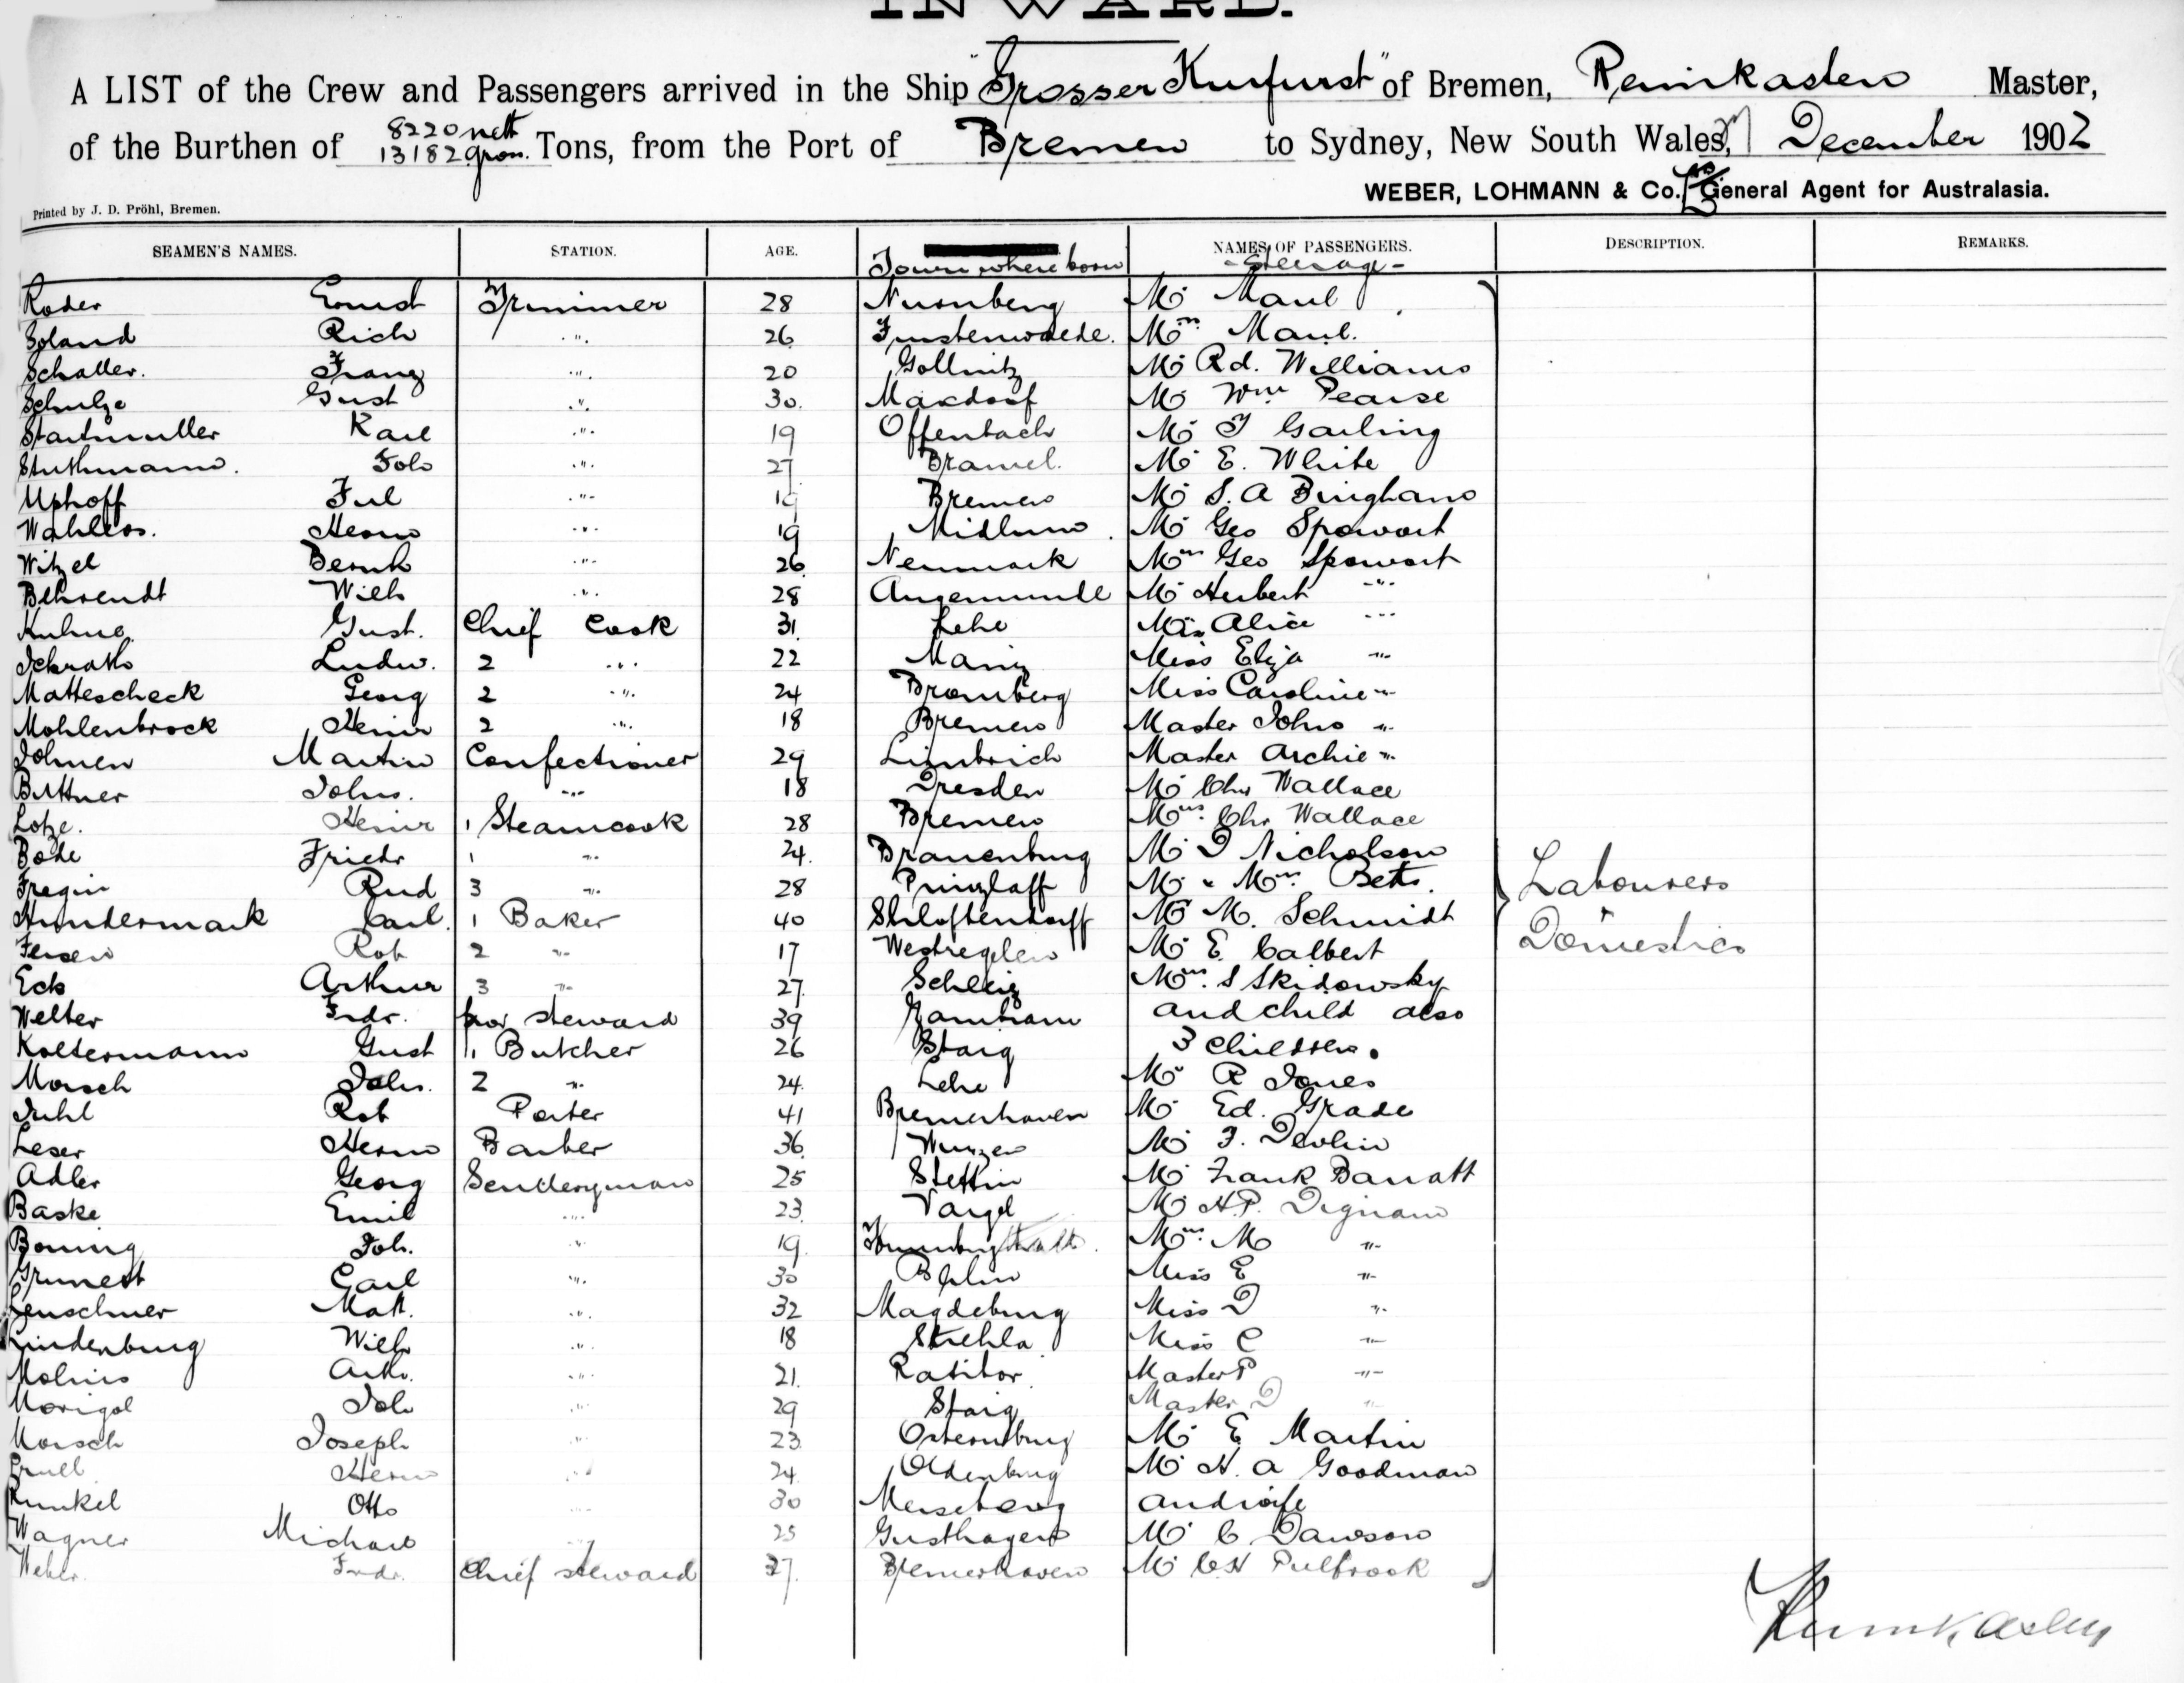 INWARD.
A LIST of the Crew and Passengers arrived in the Ship "Grosser Kurfurst" of Bremen, Reimkasten Master,
of the Burthen of 8220 nett 13182 gross. Tons, from the Port of Bremen to Sydney, New South Wales, December 1902
WEBER, LOHMANN & Co. General Agent for Australasia.
Printed by J. D. Pröhl, Bremen.
SEAMEN'S NAMES. STATION. AGE. Town where born NAMES OF PASSENGERS. - Steerage - DESCRIPTION. REMARKS.
Roder Ernst Trimmer 28 Nurnberg Mr Maul
Goland Rich " 26 Furstenwaede. Mrs Maul.
Schaller. Franz " 20 Gollnitz Mr Rd. Williams
Schulze Gust " 30. Maxdorf Mr Wm Pearse
Startmuller Karl " 19 Offenbach Mr T Garling
Stuthmann. Joh " 27 Bramel. Mr E. White
Uphoff Jul " 19 Bremen Mr S. A Bingham
Wahlers. Herm " 19 Midlum Mr Geo Spowart
Witzel Bernh " 26 Neumark Mrs Geo Spowart
Behrendt Wilh " 28 Angermunde Mr Herbert "
Kuhne. Gust. Chief Cook 31 Lehe Miss Alice "
Ickrath Ludw. 2 " 22 Mainz Miss Eliza "
Mattescheck Georg 2 " 24 Bromberg Miss Caroline "
Mohlenbrock Heinr 2 " 18 Bremen Master John "
Johnen Martin Confectioner 29 Limbrich Master Archie "
Buttner Johs. " 18 Dresden Mr Chr Wallace
Lotze. Heinr 1 Steamcook 28 Bremen Mrs. Chr Wallace
Bode Friedr 1 " 24. Brauenburg Mr D Nicholson
Fregin Rud 3 " 28 Prinzlaff Mr & Mrs. Betts. Labourers
Hundermark Carl. 1 Baker 40 Mr M. Schmidt
Rob 2 " 17 Westregelen Mr E. Calbert Domestics
Eck Arthur 3 " 27 Schleiz Mrs. S Skidowsky
Welter Frdr. prov steward 39 and child also
Koltermann Gust 1 Butcher 26 Staig 3 children.
Morsch Johs. 2 " 24. Lehe Mr R Jones
Juhl Rob Porter 41 Bremerhaven Mr Ed. Grade
Leser Herm Barber 36 Wurzen Mr F. Devlin
Adler Georg 25 Stettin Mr Frank Barratt
Baske Emil " 23 Vargel Mr H.P. Dignam
Boning Joh. " 19. Mrs. M "
Grunert Carl " 30 Berlin Miss E "
Leuschner Matt. " 32 Magdeburg Miss D "
Lindenburg Wilh " 18 Strehla Miss C "
Molnis Arth. " 21. Ratibor Master P "
Morigol Joh " 29 Staig Master D "
Morsch Joseph " 23. Osternburg Mr E Martin
Herm " 24. Oldenburg Mr H. A Goodman
Runkel Otto " 30 Merseberg and wife
Wagner Michael " 25 Gusthagen Mr C Dawson
Weber. Frdr. Chief steward 37 Bremerhaven Mr C.H Pulbrook
Reimkasten